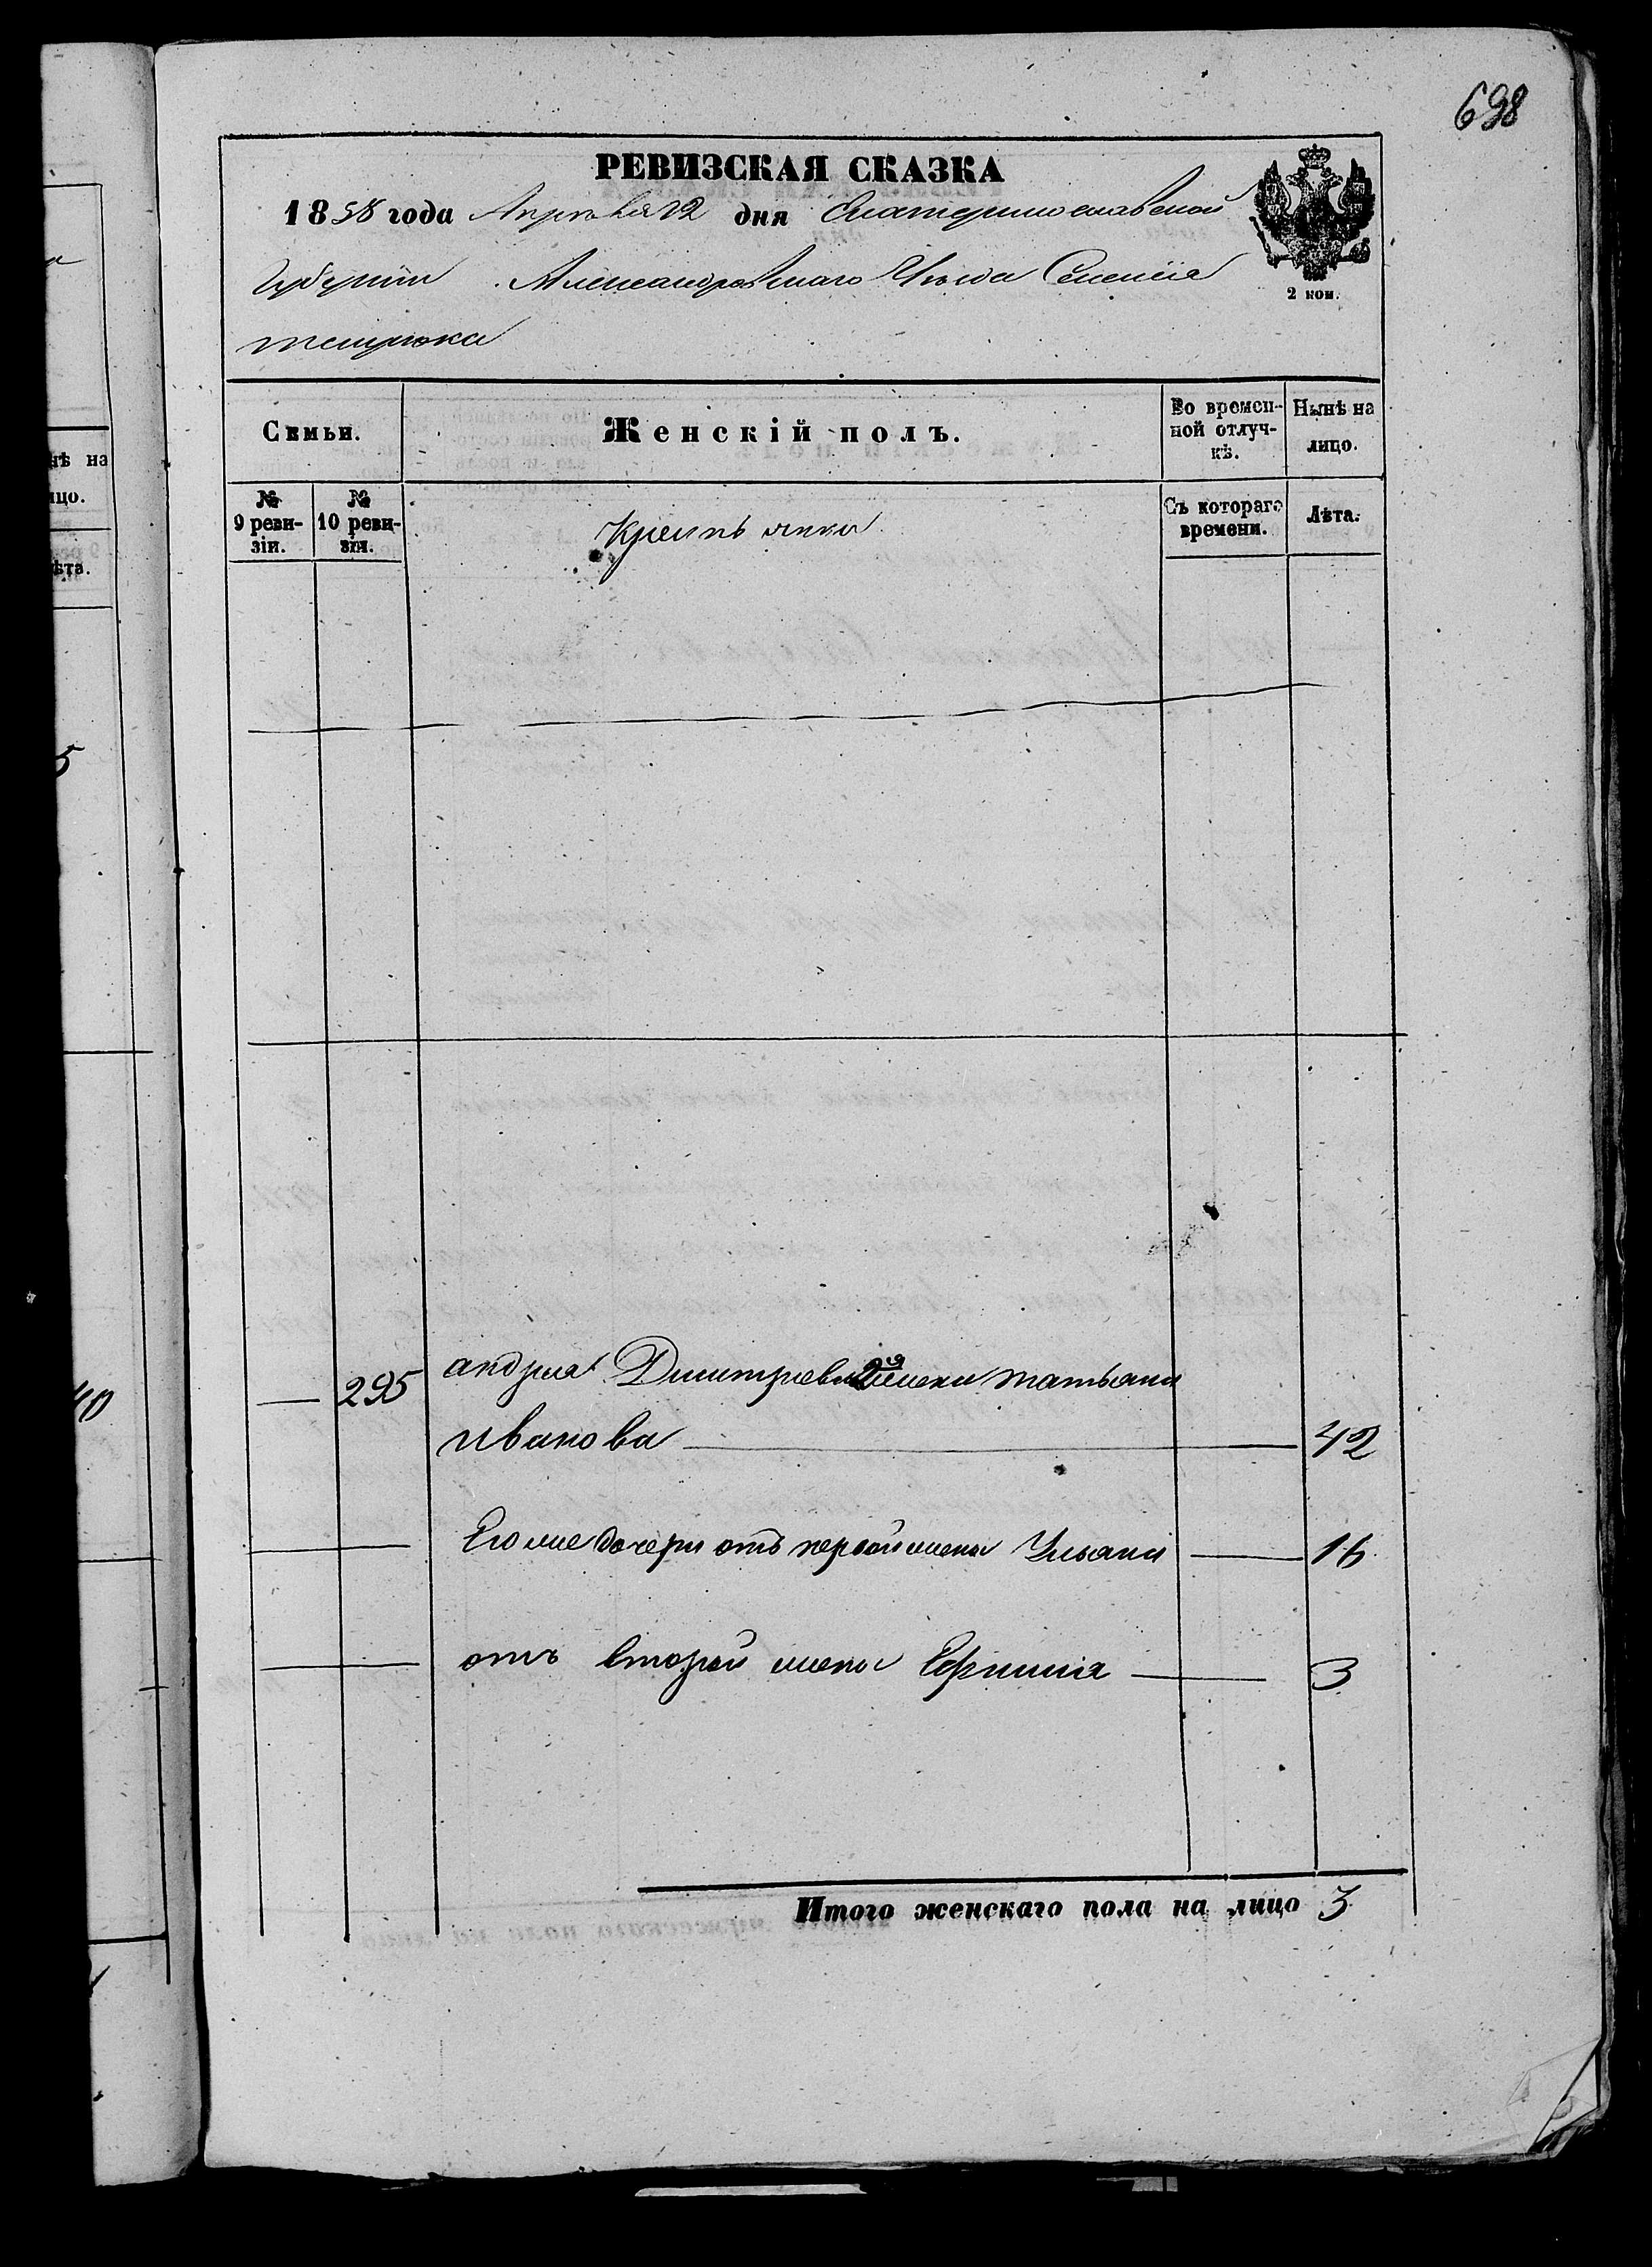 698
РЕВИЗСКАЯ СКАЗКА
1858 года Апреля 22 дня Екатеринославской
Губернии Александровского Уезда Селения
темрюка
2 коп.
Семьи.
Женскій полъ.
Во времен-
ной отлуч-
кѣ.
Нынѣ на
лицо.
№
9 реви-
зіи.
№
10 реви-
зіи.
Крестьянки
Съ котораго
времени.
Лѣта.
295 андрея Дмитриева 2я жена татьяна
иванова 42
Его же дочери отъ первой жены Ульяна 16
отъ второй жены Ефимия 3
Итого женскаго пола на лицо 3
нѣ на
ицо.
ѣта.
5
40